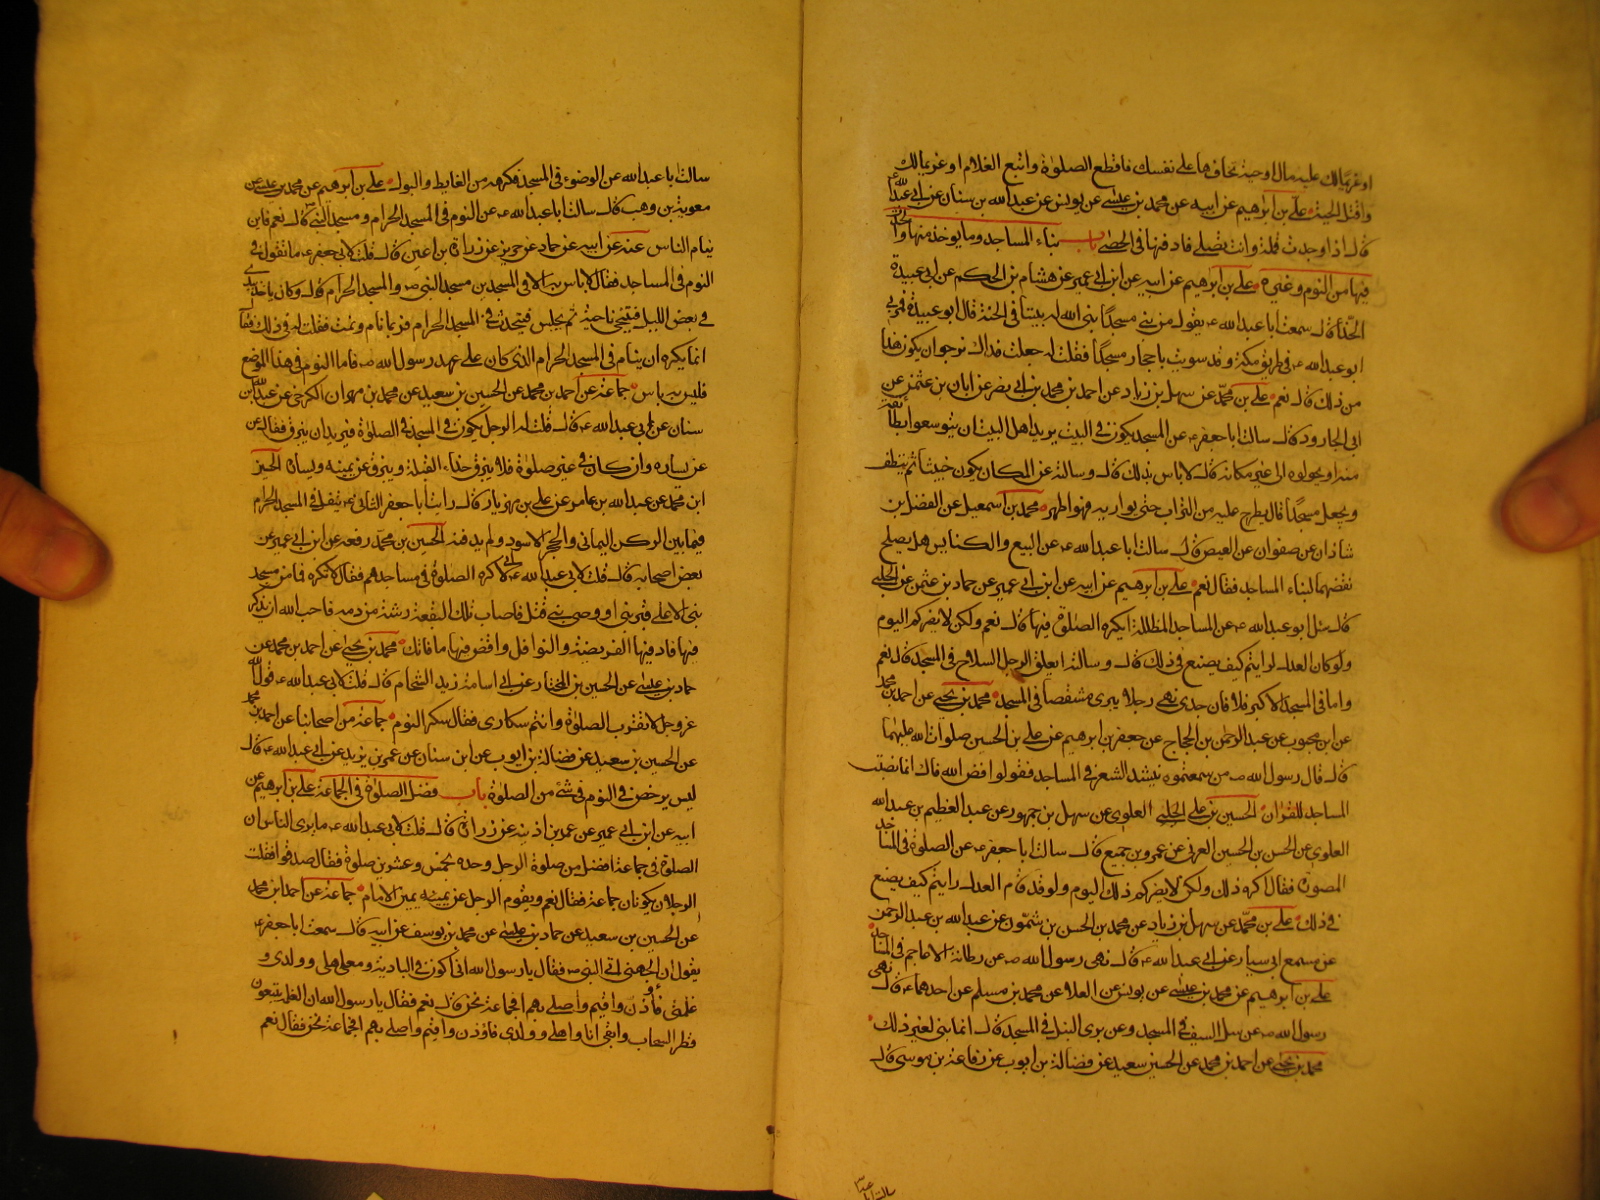 او غريما لك عليه مال او حية تخافها على نفسك فاقطع الصلوة واتبع الغلام او غريما لك
واقتل الحية علي بن ابرهيم عن ابيه عن محمد بن عيسى عن يونس عن عبدالله بن سنان عن ابي عبدالله
قال اذا وجدت قملة وانت تصلي فادفنها في الحصى باب بناء المساجد وما يوخذ منها والحدث
فيها من النوم وغيره علي بن ابرهيم عن ابيه عن ابن ابي عمير عن هشام بن الحكم عن ابي عبيدة
الحذاء قال سمعت ابا عبدالله ع يقول من بنى مسجدا بنى الله له بيتا في الجنة قال ابو عبيدة فمر بي
ابو عبدالله ع في طريق مكة وقد سويت باحجار مسجدا فقلت له جعلت فداك نرجوان يكون هذا
من ذلك قال نعم علي بن محمد عن سهل بن زياد عن احمد بن محمد بن ابي نصر عن ابان بن عثمن عن
ابي الجارود قال سالت ابا جعفر ع عن المسجد يكون في البيت يريد اهل البيت ان يتوسعوا بطائفة
منه او يحولوه الى غير مكانه قال لا باس بذلك قال وسالته عن المكان يكون خبيثا ثم ينظف
ويجعل مسجدا قال يطرح عليه من التراب حتى يواريه فهو اطهر محمد بن اسمعيل عن الفضل بن
شاذان عن صفوان عن العيص قال سالت ابا عبدالله ع عن البيع والكنايس هل يصلح
نقضهما لبناء المساجد فقال نعم علي بن ابرهيم عن ابيه عن ابن ابي عمير عن حماد بن عثمن عن الحلبي
قال سئل ابو عبدالله ع عن المساجد المظللة ايكره الصلوة فيها قال نعم ولكن لا يضركم اليوم
ولو كان العدل لرايتم كيف يصنع في ذلك قال وسالته ايعلق الرجل السلاح في المسجد قال نعم
واما في المسجد الاكبر فلا فان جدي نهى رجلا يبرى مشقصا في المسجد محمد بن يحيى عن احمد بن محمد
عن ابن محبوب عن عبد الرحمن بن الحجاج عن جعفر بن ابرهيم عن علي بن الحسين صلوات الله عليهما
قال قال رسول الله ص من سمعتموه ينشد الشعر في المساجد فقولوا فض الله فاك انما نصبت
المساجد للقران الحسين بن علي العلوي عن سهل بن جمهور عن عبد العظيم بن عبدالله
العلوي عن الحسن بن الحسين العرني عن عمرو بن جميع قال سالت ابا جعفر ع عن الصلوة في المساجد
المصورة فقال اكره ذلك ولكن لا يضركم ذلك اليوم ولو قد قام العدل رايتم كيف يصنع
في ذلك علي بن محمد عن سهل بن زياد عن محمد بن الحسن بن شمون عن عبدالله بن عبد الرحمن
عن مسمع ابي سيار عن ابي عبدالله ع قال نهى رسول الله ص عن رطانة الاعاجم في المساجد
علي بن ابرهيم عن محمد بن عيسى عن يونس عن العلا عن محمد بن مسلم عن احدهما ع قال نهى
رسول الله ص عن سل السيف في المسجد وعن برى النبل في المسجد قال انما بني لغير ذلك
محمد بن يحيى عن احمد بن محمد عن الحسين سعيد عن فضالة بن ايوب عن رفاعة بن موسى قال
سالت ابا عبدالله
سالت ابا عبدالله عن الوضوء في المسجد فكرهه من الغايط والبول علي بن ابرهيم عن محمد بن عيسى عن
معوية بن وهب قال سالت ابا عبدالله ع عن النوم في المسجد الحرام ومسجد النبي قال نعم فاين
ينام الناس عنه عن ابيه عن حماد عن حريز عن زرارة بن اعين قال قلت لابي جعفر ع ما تقول في
النوم في المساجد فقال لا باس به الا في المسجدين مسجد النبي ص والمسجد الحرام قال وكان ياخذ بيدي
في بعض الليل فيتنحى ناحية ثم يجلس فيتحدث في المسجد الحرام فربما نام ونمت فقلت له في ذلك فقال
انما يكره ان ينام في المسجد الحرام الذي كان على عهد رسول الله ص فاما النوم في هذا الموضع
فليس به باس جماعة عن احمد بن محمد عن الحسين بن سعيد عن محمد بن مهران الكرخي عن عبدالله بن
سنان عن ابي عبدالله ع قال قلت له الرجل يكون في المسجد في الصلوة فيريد ان يبزق فقال عن
عن يساره وان كان في غير صلوة فلا يبزق حذاء القبلة ويبزق عن يمينه ويساره الحسين
ابن محمد عن عبدالله بن عامر عن علي بن مهزيار قال رايت ابا جعفر الثاني ع يتفل في المسجد الحرام
فيما بين الركن اليماني والحجر الاسود ولم يدفنه الحسين بن محمد رفعه عن ابن ابي عمير عن
بعض اصحابه قال قلت لابي عبدالله ع اني لاكره الصلوة في مساجدهم فقال لا تكره فما من مسجد
بني الا على قبر نبي او وصي نبي قتل فاصاب تلك البقعة رشة من دمه فاحب الله ان يذكر
فيها فاد فيها الفريضة والنوافل واقض فيها ما فاتك محمد بن يحيى عن احمد بن محمد عن
حماد بن عيسى عن الحسين بن المختار عن ابي اسامة زيد الشحام قال قلت لابي عبدالله ع قول الله
عز وجل لا تقربوا الصلوة وانتم سكارى فقال سكر النوم جماعة من اصحابنا عن احمد بن محمد
عن الحسين بن سعيد عن فضالة بن ايوب عن ابن سنان عن عمر بن يزيد عن ابي عبدالله ع قال
ليس يرخص في النوم في شئ من الصلوة باب فضل الصلوة في الجماعة علي بن ابرهيم عن
ابيه عن ابن ابي عمير عن عمر بن اذينة عن زرارة قال قلت لابي عبدالله ع ما يروى الناس ان
الصلوة في جماعة افضل من صلوة الرجل وحده بخمس وعشرين صلوة فقال صدقوا فقلت
الرجلان يكونان جماعة فقال نعم ويقوم الرجل عن يمينه يمين الامام جماعة عن احمد بن محمد
عن الحسين بن سعيد عن حماد بن عيسى عن محمد بن يوسف عن ابيه قال سمعت ابا جعفر ع
يقول ان الجهني اتى النبي ص فقال يا رسول الله اني اكون في البادية ومعي اهلي وولدي و
غلمتي فاؤذن واقيم واصلي بهم افجماعة نحن قال نعم فقال يا رسول الله ان الغلمة يتبعون
قطر السحاب وابقى انا واهلي وولدي فاؤذن واقيم واصلي بهم افجماعة نحن فقال نعم